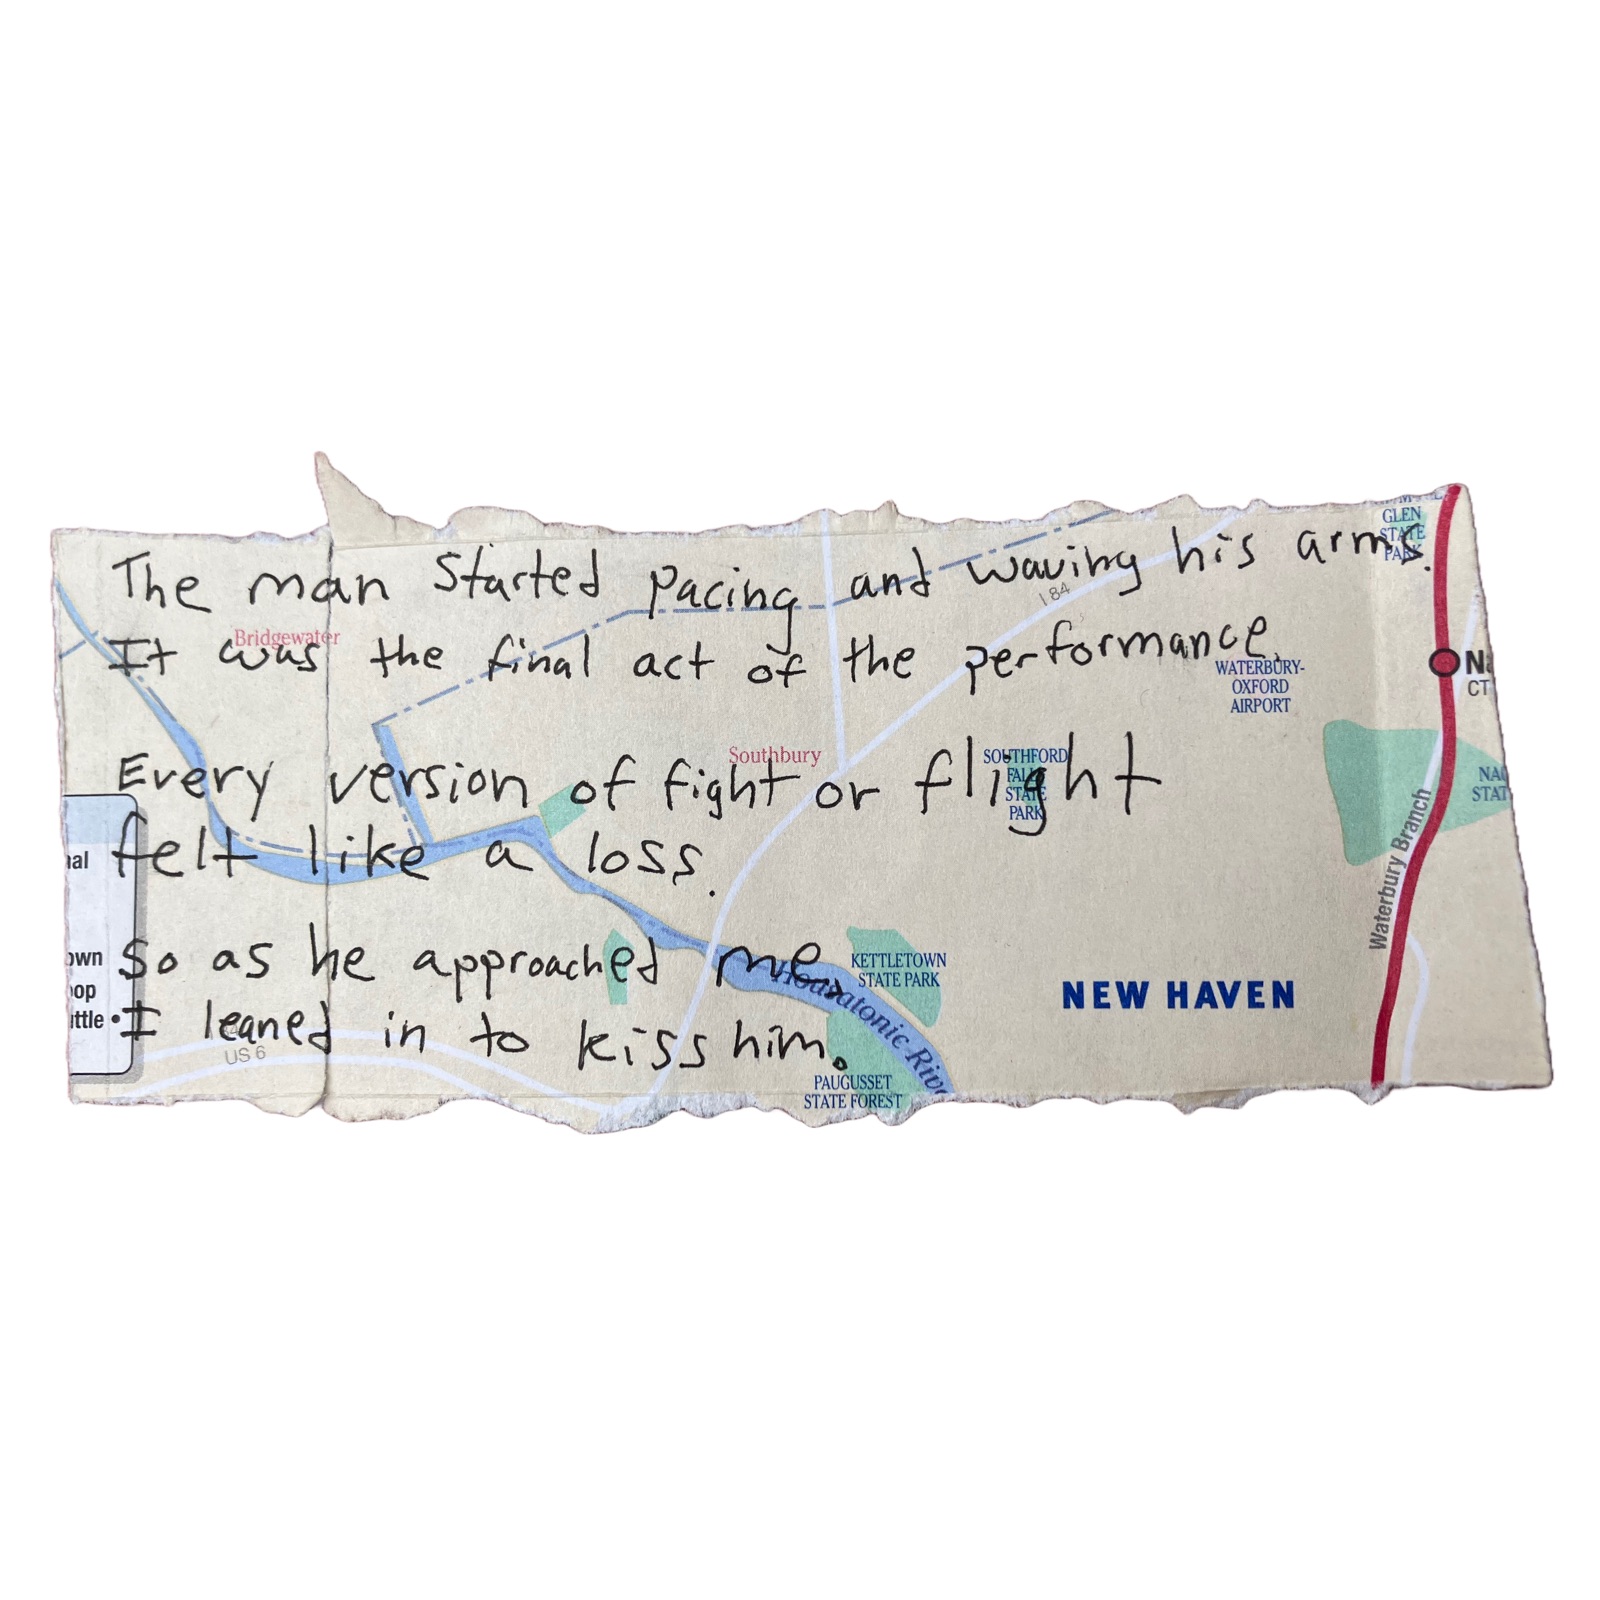 The man started pacing and waving his arms.
It was the final act of the performance.
Every version of fight or flight
felt like a loss.
So as he approached me,
I leaned in to kiss him.
GLEN
STATE
PARK
I 84
Bridgewater
WATERBURY-
OXFORD
AIRPORT
CT
Southbury
SOUTHFORD
FALLS
STATE
PARK
Waterbury Branch
KETTLETOWN
STATE PARK
Housatonic
NEW HAVEN
US 6
PAUGUSSET
STATE FOREST